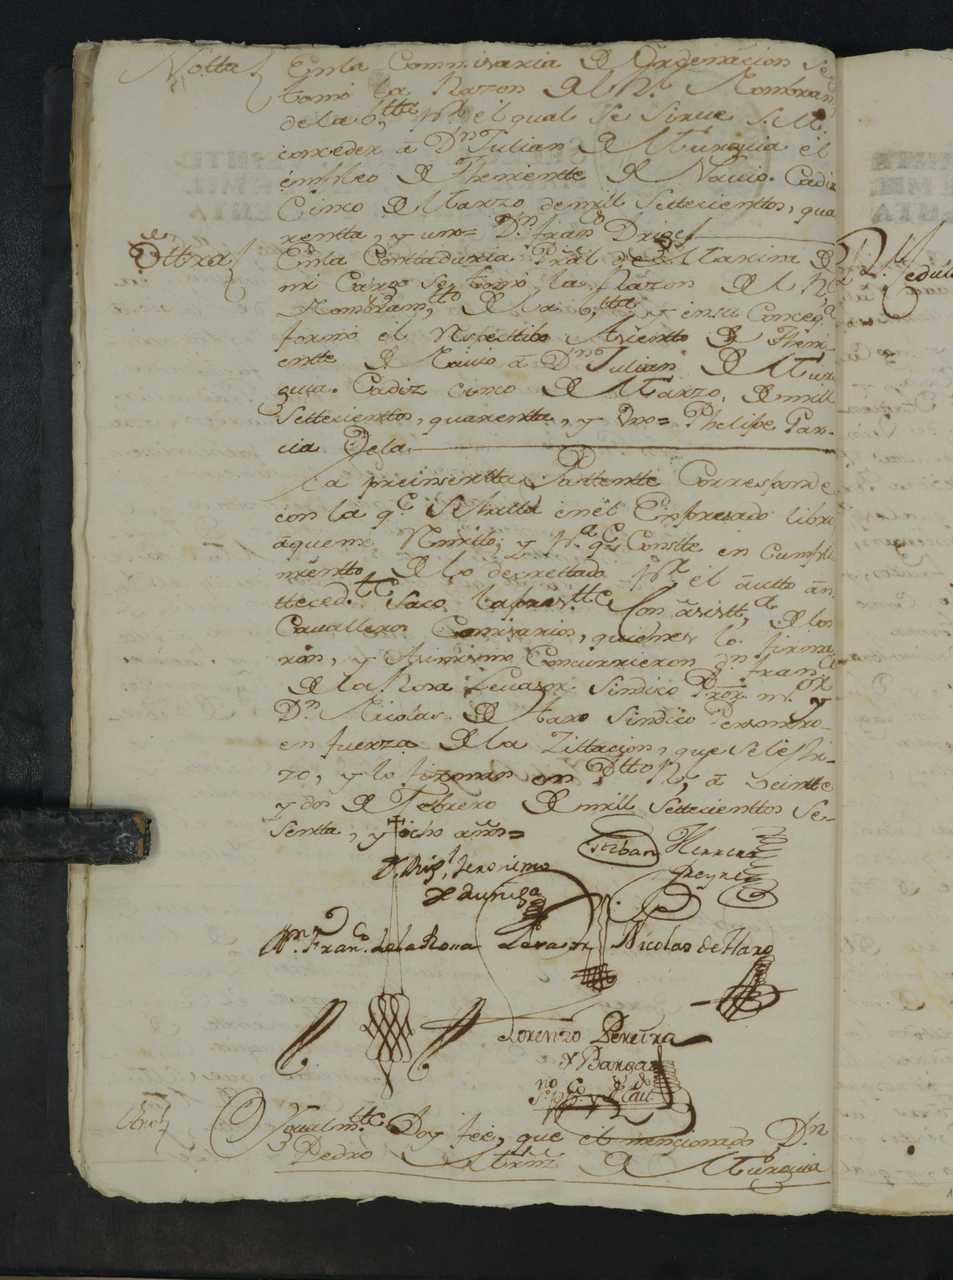 Notta En la Commisaria de Ordenacion se
tomó la Razon del Rl. Nombram
de la b.tta pr. el qual se sirve S.M.
conceder â Dn. Julian de Murguia el
empleo de Theniente de Navio. Cadiz
Cinco de Marzo de mill Settecienttos, qua
rentta, y uno= Dn. Fran.co
Ottra En la Contaduria Pral. de Marina de
mi Cargo se tomó la Razon del Rl.
Nombram.tto de la b.tta y en su Conseq.a
formó el Respectibo Assiento de Theni-
ente de Navio â Dn. Julian de Mur
guia. Cadiz cinco de Marzo, de mill
Settecienttos, quarentta, y Uno= Phelipe Gar-
cia Dela
La preinsertta Pattentte Corresponde
con la q.e se halla en el Expresado libro
âque me Remito, y p.a q.e Constte en Cumpli
mientto de lo decrettado pr. el âutto ân
tteced.tte Saco la press.tte Con âsistt.a de los
Cavalleros Comisarios, quienes lo firma
ron, y Asimismo Concurrieron Dn. Fran.co
de la Rosa Levasor Sindico Pror. m.or y
Dn. Nicolas de Haro Sindico Personero
en fuerza de la Zittacion, que se les hi-
zo, y lo firman en Ptto Rl, â Veintte
y dos de Febrero de mill Settecienttos Se-
sentta, y ocho años=
Esteban Herrera
Dn. Jeronimo
de Zuñiga
Dn. Fran.co de la Rosa Levasor Nicolas de Haro
Lorenzo Pereira
y Bargas
Ygualm.tte Doy fee, que el mencionado Dn.
Pedro de Murguia